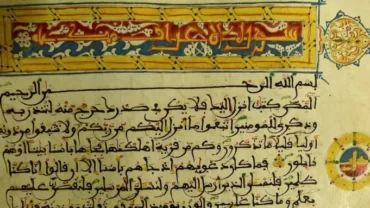 سورة الاعراف
بسم الله الرحمن الرحيم
المص كتب انزل اليك فلا يكن في صدرك حرج منه لتنذر به
وذكرى للمومنين اتبعوا ما انزل اليكم من ربكم ولا تتبعوا من دونه
اولياء قليلا ما تذكرون وكم من قرية اهلكنها فجاءها باسنا بيتا او هم
قايلون فما كان دعويهم اذ جاءهم باسنا الا ان قالوا انا كنا
ظلمين فلنسلن الذين ارسل اليهم ولنسلن المرسلين فلنقصن عليهم
بعلم وما كنا غايبين والوزن يوميذ